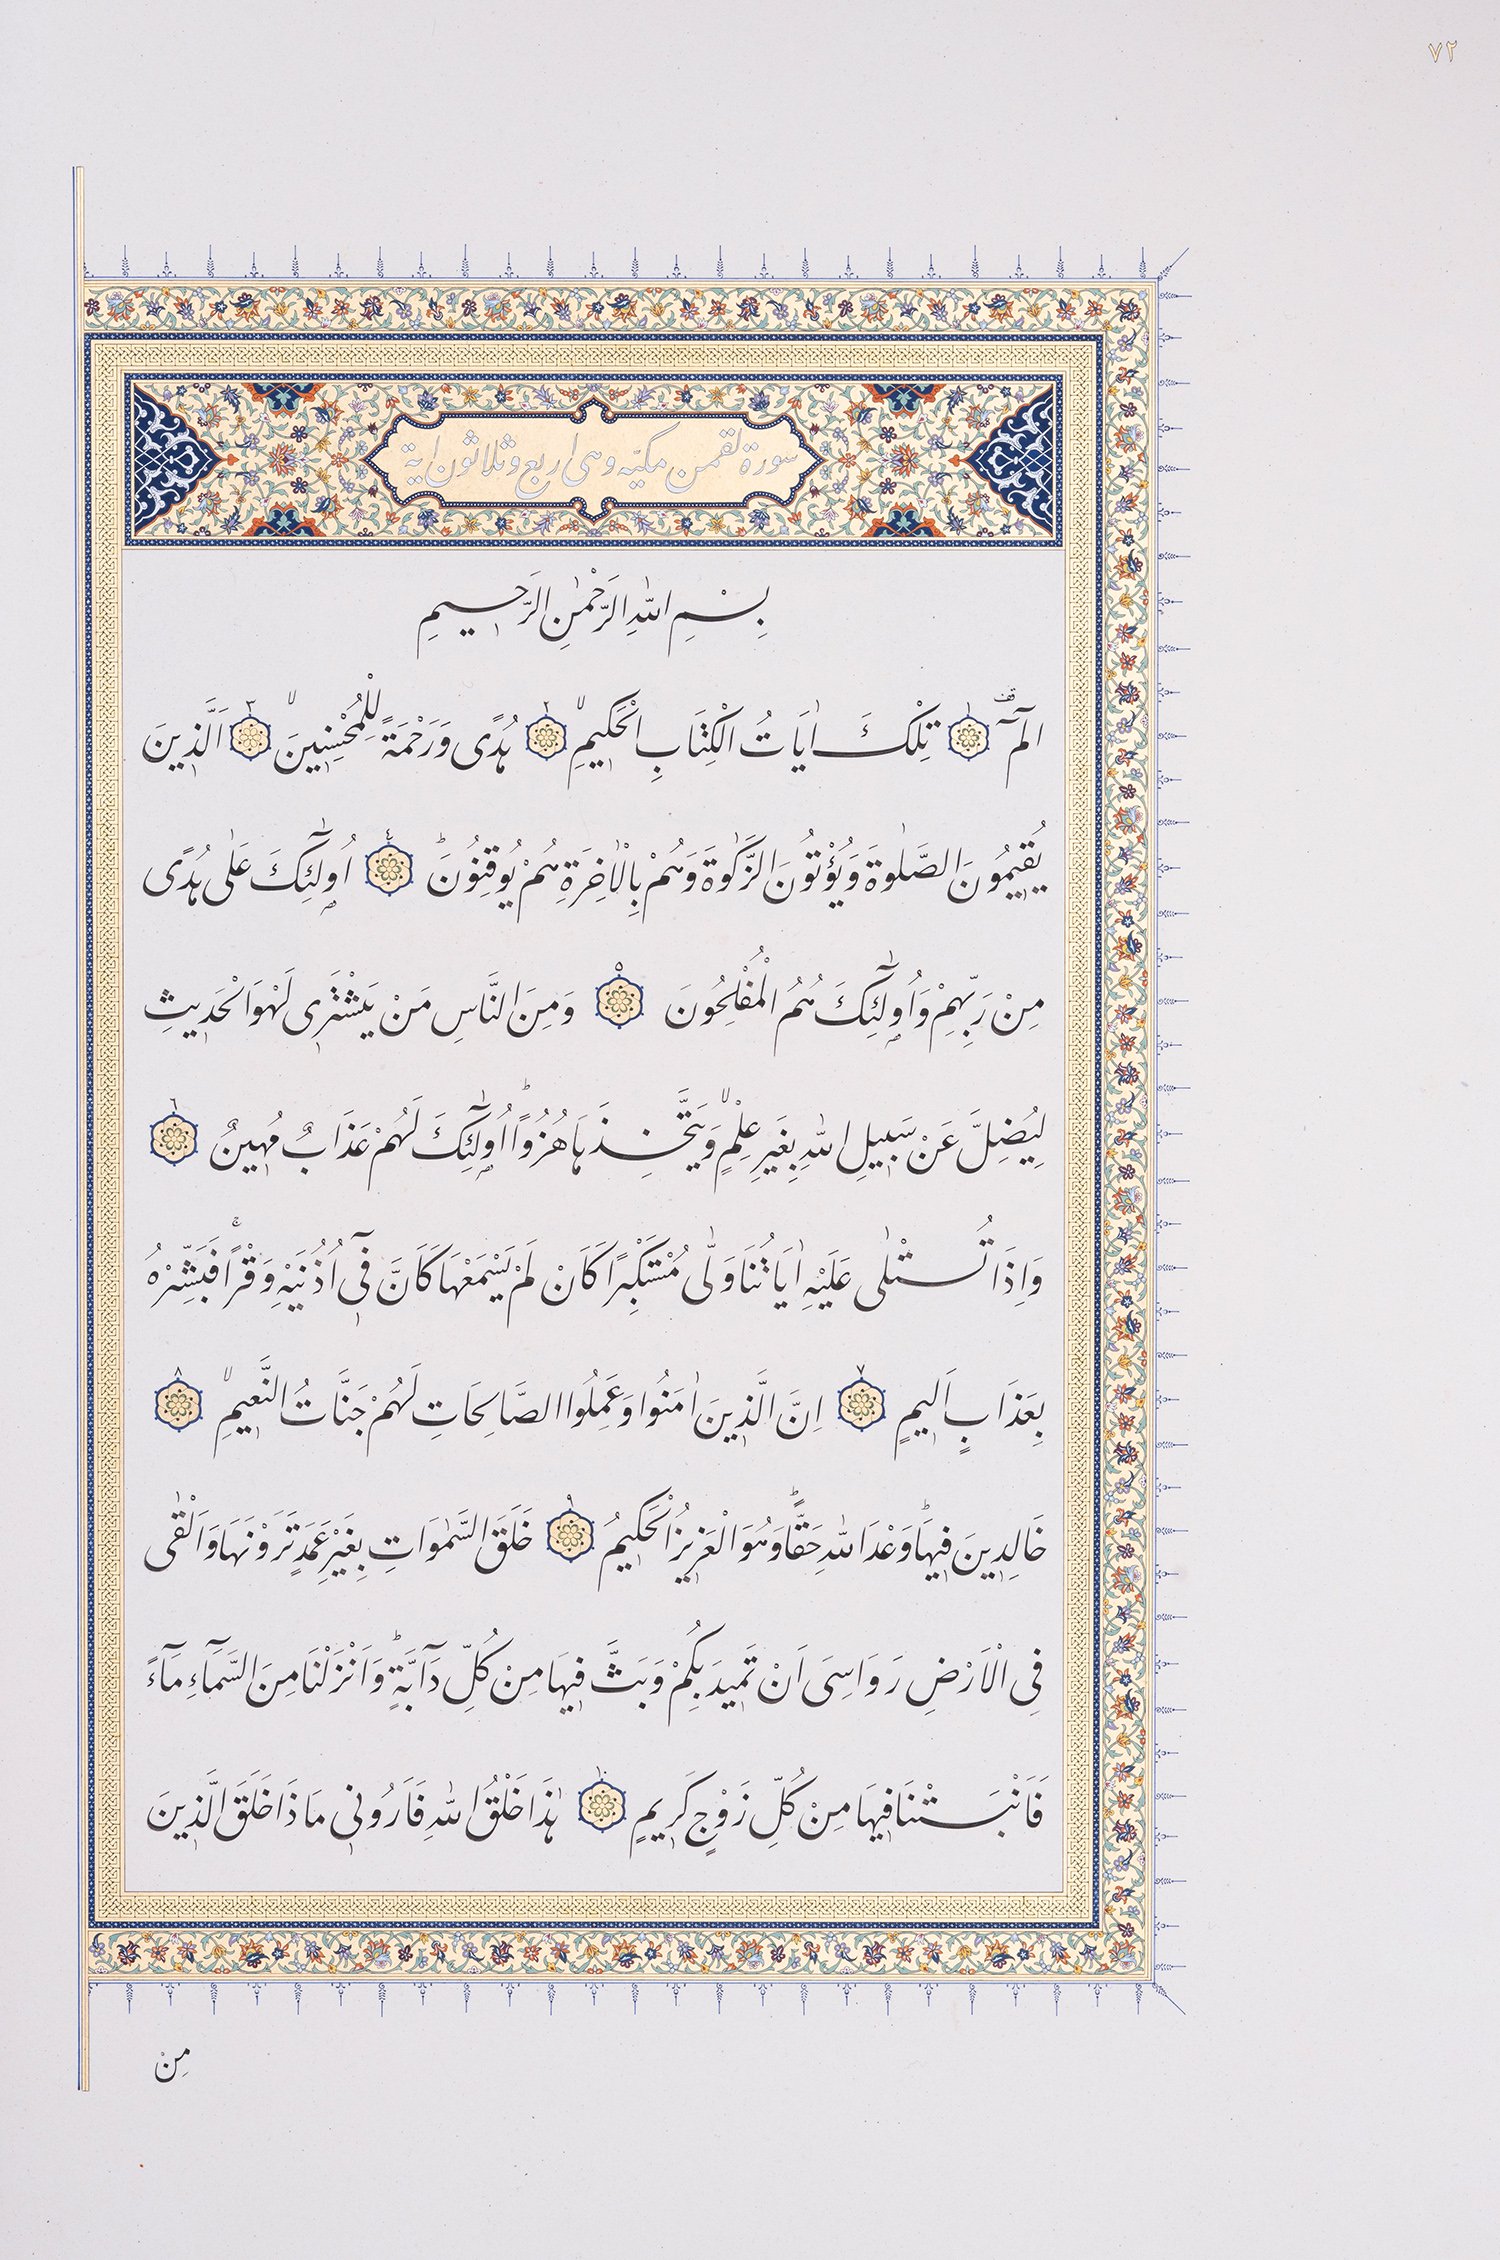 ٧٢
سورة لقمن مكيّه وهى اربع و ثلاثون اية
بِسْمِ اللّٰهِ الرَّحْمٰنِ الرَّحِيمِ
الٓمٓ ۗ ١ تِلْكَ اٰيَاتُ الْكِتَابِ الْحَكِيمِۙ ٢ هُدًى وَرَحْمَةً لِلْمُحْسِنِينَۙ ٣ اَلَّذِينَ
يُقِيمُونَ الصَّلٰوةَ وَيُؤْتُونَ الزَّكٰوةَ وَهُمْ بِالْاٰخِرَةِ هُمْ يُوقِنُونَۜ ٤ اُو۬لٰٓئِكَ عَلٰى هُدًى
مِنْ رَبِّهِمْ وَاُو۬لٰٓئِكَ هُمُ الْمُفْلِحُونَ ٥ وَمِنَ النَّاسِ مَنْ يَشْتَرِى لَهْوَ الْحَدِيثِ
لِيُضِلَّ عَنْ سَبِيلِ اللّٰهِ بِغَيْرِ عِلْمٍۙ وَيَتَّخِذَهَا هُزُوًاۜ اُو۬لٰٓئِكَ لَهُمْ عَذَابٌ مُهِينٌ ٦
وَاِذَا تُتْلٰى عَلَيْهِ اٰيَاتُنَا وَلّٰى مُسْتَكْبِرًا كَاَنْ لَمْ يَسْمَعْهَا كَاَنَّ فِٓى اُذُنَيْهِ وَقْرًاۚ فَبَشِّرْهُ
بِعَذَابٍ اَلِيمٍ ٧ اِنَّ الَّذِينَ اٰمَنُوا وَعَمِلُوا الصَّالِحَاتِ لَهُمْ جَنَّاتُ النَّعِيمِۙ ٨
خَالِدِينَ فِيهَاۜ وَعْدَ اللّٰهِ حَقًّاۜ وَهُوَ الْعَزِيزُ الْحَكِيمُ ٩ خَلَقَ السَّمٰوَاتِ بِغَيْرِ عَمَدٍ تَرَوْنَهَا وَاَلْقٰى
فِى الْاَرْضِ رَوَاسِىَ اَنْ تَمِيدَ بِكُمْ وَبَثَّ فِيهَا مِنْ كُلِّ دَٓابَّةٍۜ وَاَنْزَلْنَا مِنَ السَّمَٓاءِ مَٓاءً
فَاَنْبَتْنَا فِيهَا مِنْ كُلِّ زَوْجٍ كَرِيمٍ ١٠ هٰذَا خَلْقُ اللّٰهِ فَاَرُونِى مَاذَا خَلَقَ الَّذِينَ
مِنْ